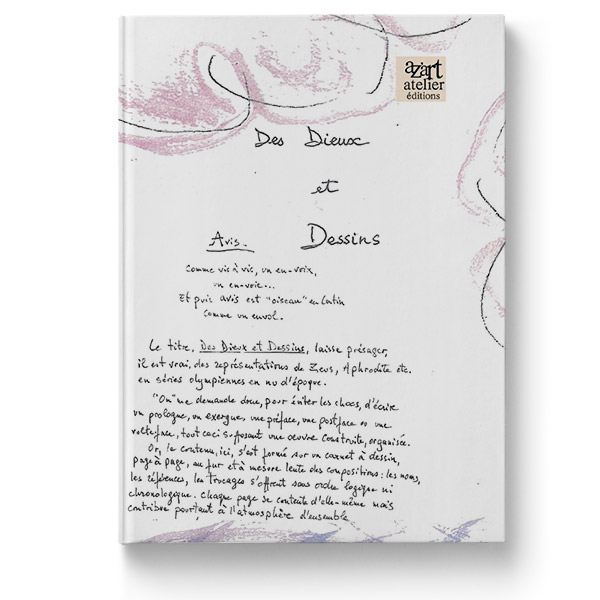 az'art
atelier
éditions
Des Dieux
et
Dessins
Avis.
Comme vis à vis, un en-voix,
un en-voie...
Et puis avis est "oiseau" en latin
Comme un envol.
Le titre, Des Dieux et Dessins, laisse présager,
il est vrai, des représentations de Zeus, Aphrodite etc.
en séries olympiennes en nu d'époque.
"On" me demande donc, pour éviter les chocs, d'écrire
un prologue, un exergue, une préface, une postface ou une
volteface, tout ceci supposant une œuvre construite, organisée.
Or, le contenu, ici, s'est formé sur un carnet à dessin,
page à page, au fur et à mesure lente des compositions: les noms,
les références, les trucages s'offrent sans ordre logique ni
chronologique. Chaque page se contente d'elle-même mais
contribue pourtant à l'atmosphère d'ensemble